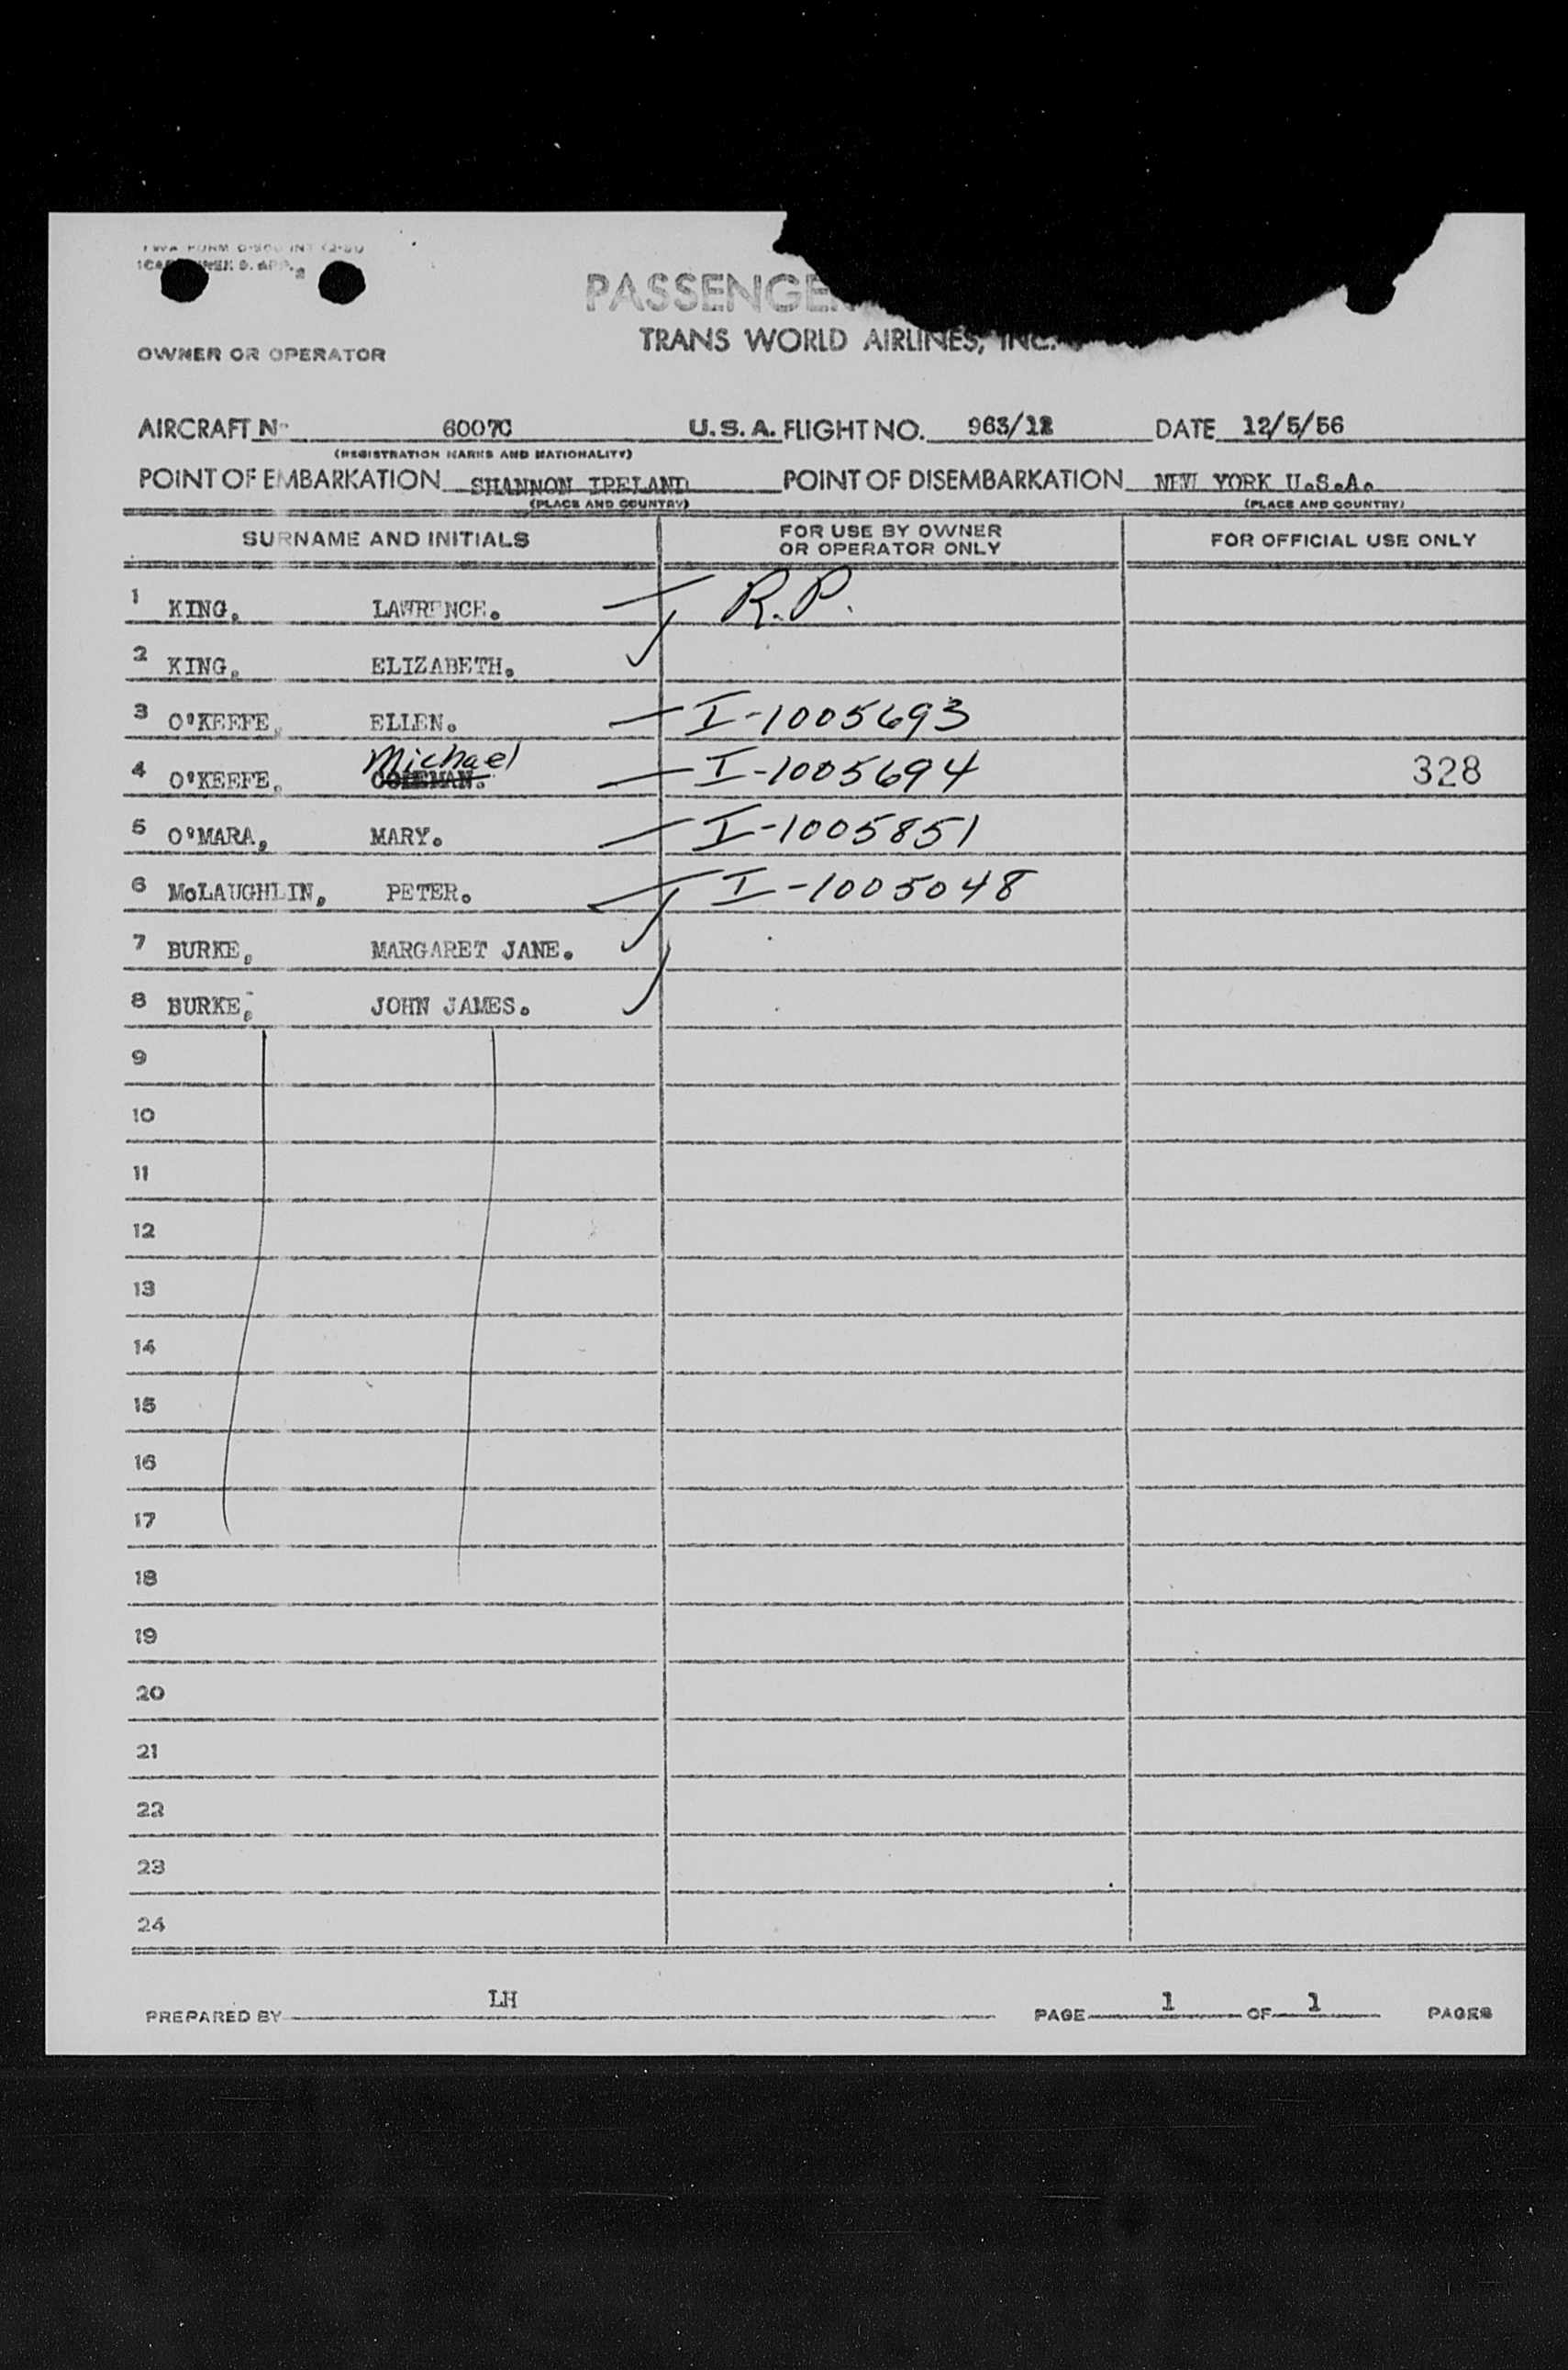 TWA FORM
OWNER OR OPERATOR
TRANS WORLD AIRLINES, INC.
AIRCRAFT N 6007C U.S.A. FLIGHT NO. 963/12 DATE 12/5/56
(REGISTRATION MARKS AND NATIONALITY)
POINT OF EMBARKATION SHANNON IRELAND POINT OF DISEMBARKATION NEW YORK U.S.A.
(PLACE AND COUNTRY) (PLACE AND COUNTRY)
SURNAME AND INITIALS FOR USE BY OWNER OR OPERATOR ONLY FOR OFFICIAL USE ONLY
1 KING, LAWRENCE. R.P.
2 KING, ELIZABETH.
3 O'KEEFE, ELLEN. I-1005693
4 O'KEEFE, COLEMAN. Michael I-1005694 328
5 O'MARA, MARY. I-1005851
6 McLAUGHLIN, PETER. I-1005048
7 BURKE, MARGARET JANE.
8 BURKE, JOHN JAMES.
9
10
11
12
13
14
15
16
17
18
19
20
21
22
23
24
PREPARED BY LH PAGE 1 OF 1 PAGES